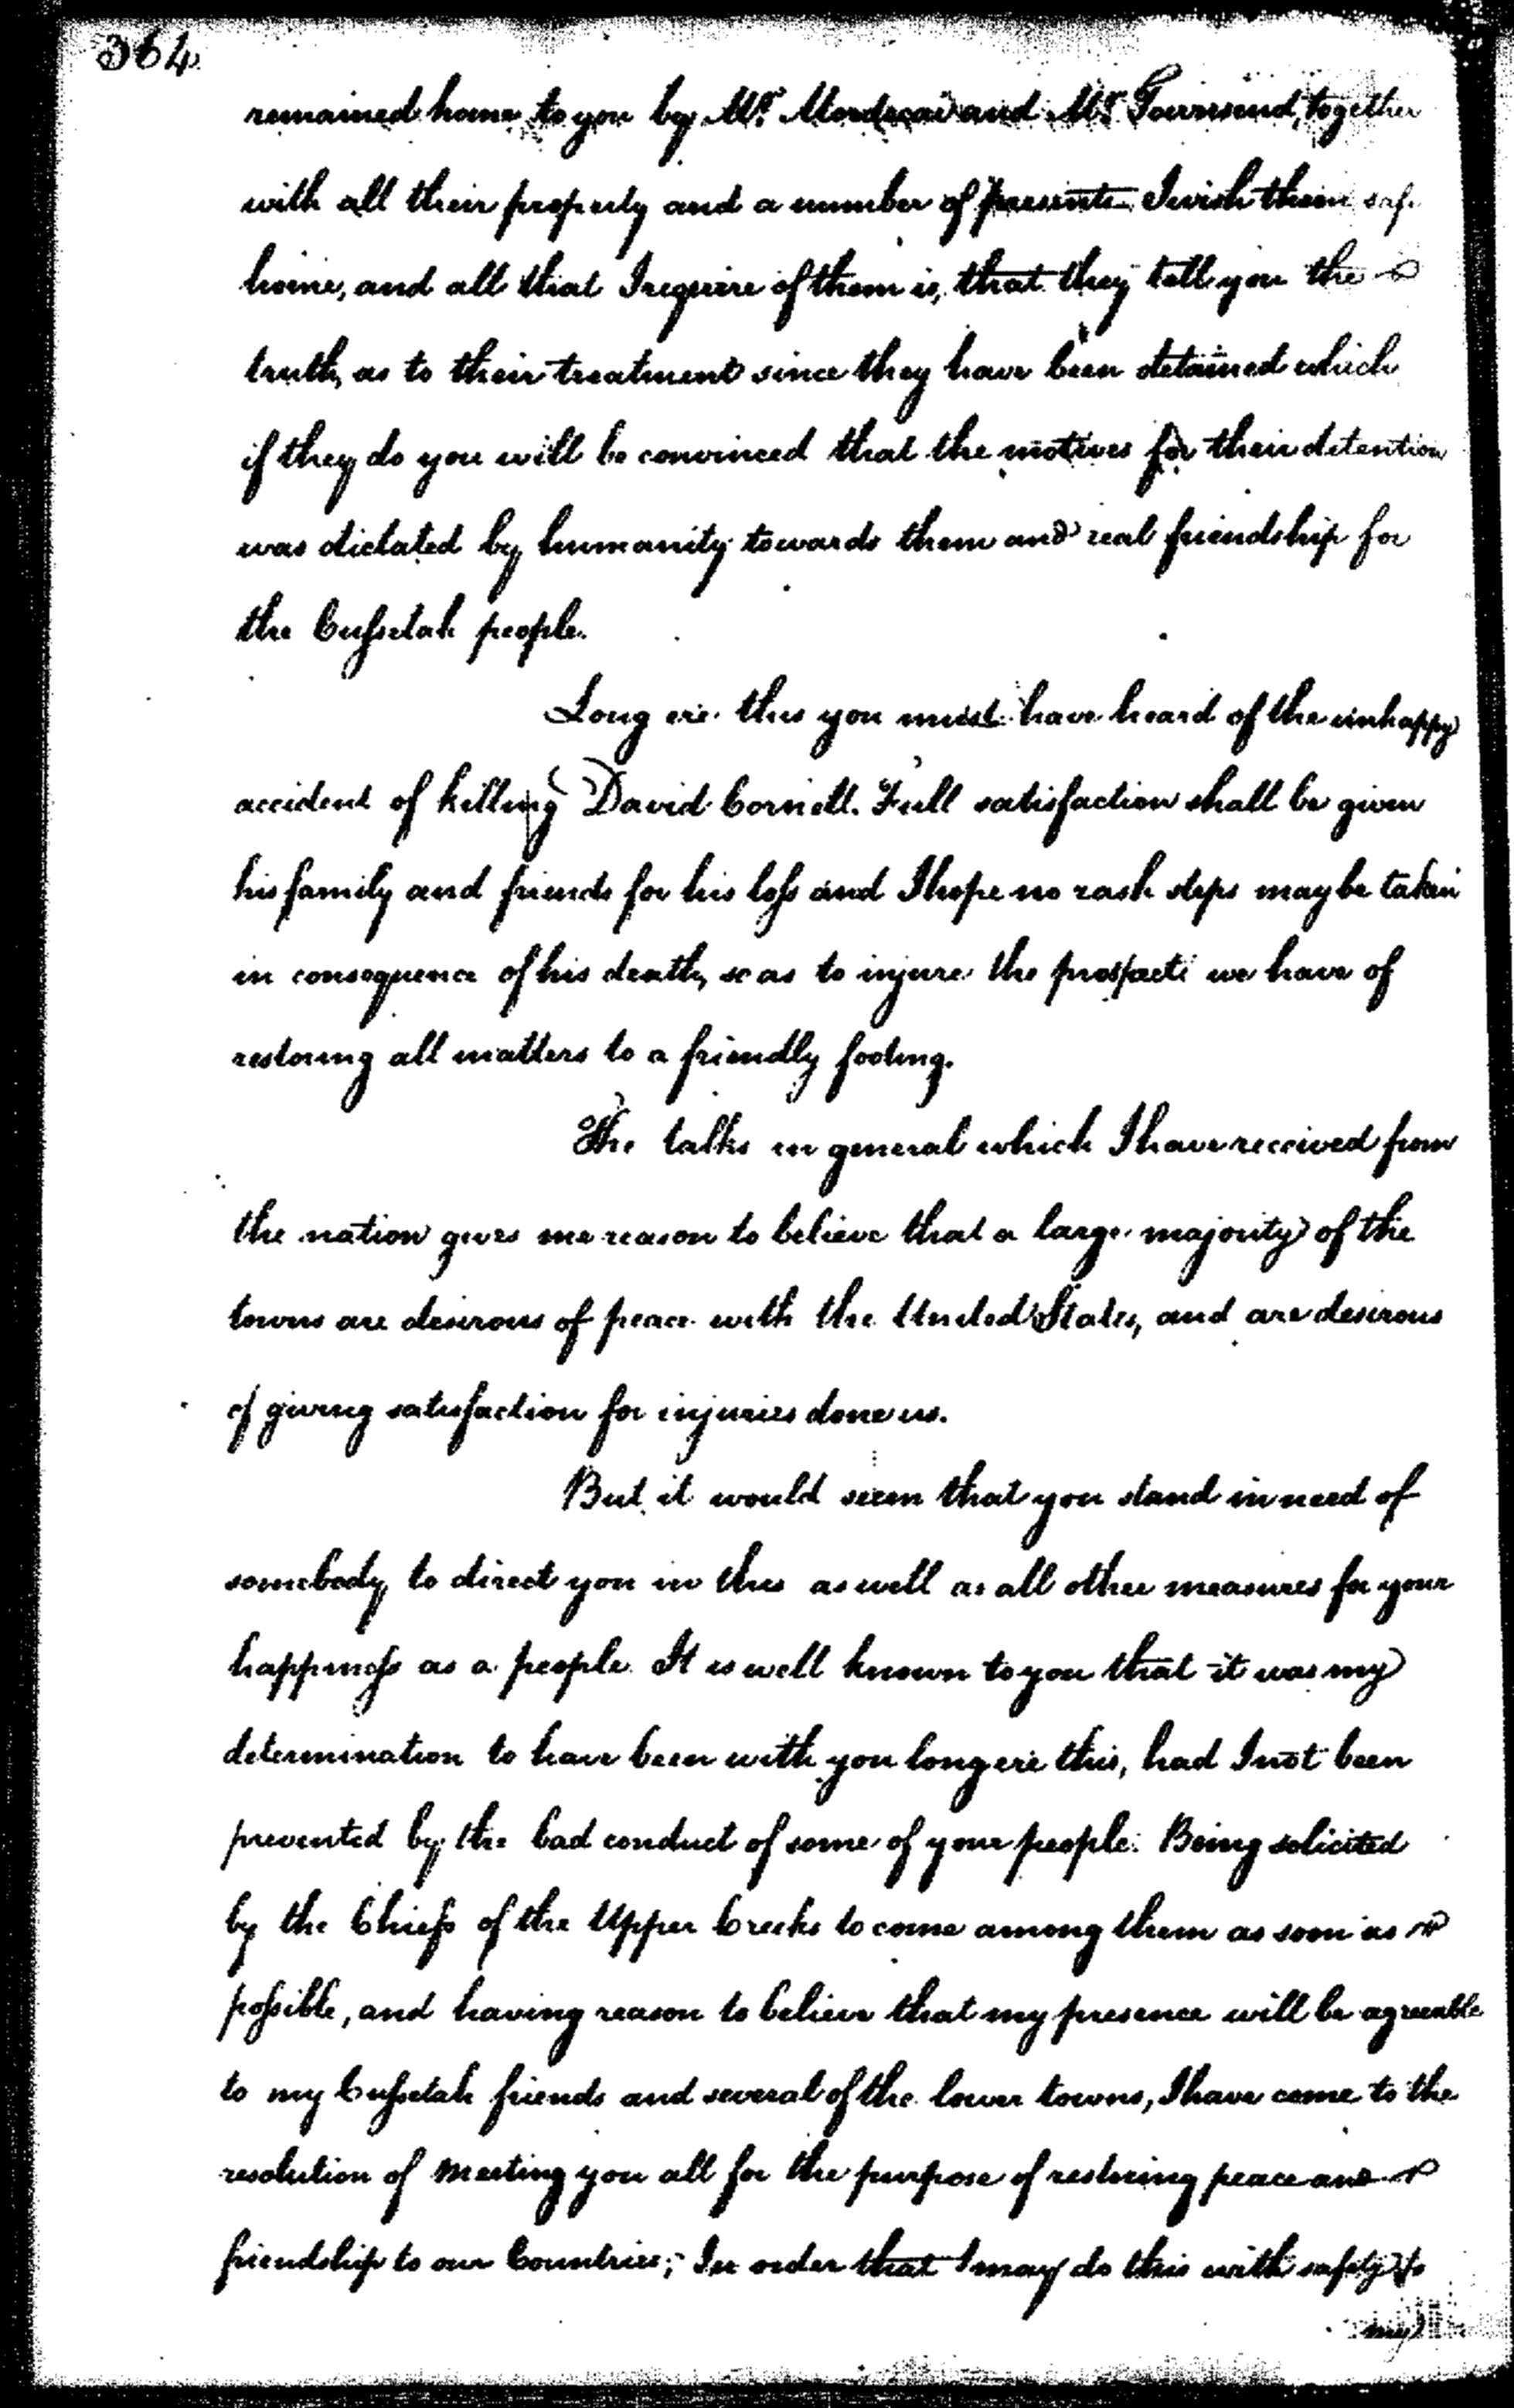 364
remained home to you by Mr. Mordecai and Mr. Townsend, together
with all their property and a number of presents. I wish them safe
home, and all that I require of them is, that they tell you the
truth, as to their treatment since they have been detained which
if they do you will be convinced that the motives for their detention
was dictated by humanity towards them and real friendship for
the Cussetah people.
Long ere this you must have heard of the unhappy
accident of killing David Cornell. Full satisfaction shall be given
his family and friends for his loss and I hope no rash steps may be taken
in consequence of his death, so as to injure the prospects we have of
restoring all matters to a friendly footing.
The talks in general which I have received from
the nation gives me reason to believe that a large majority of the
towns are desirous of peace with the United States, and are desirous
of giving satisfaction for injuries done us.
But it would seem that you stand in need of
somebody to direct you in this as well as all other measures for your
happiness as a people. It is well known to you that it was my
determination to have been with you long ere this, had I not been
prevented by the bad conduct of some of your people. Being solicited
by the Chiefs of the Upper Creeks to come among them as soon as
possible, and having reason to believe that my presence will be agreeable
to my Cussetah friends and several of the lower towns, I have come to the
resolution of meeting you all for the purpose of restoring peace and
friendship to our Countries; In order that I may do this with safety to
my